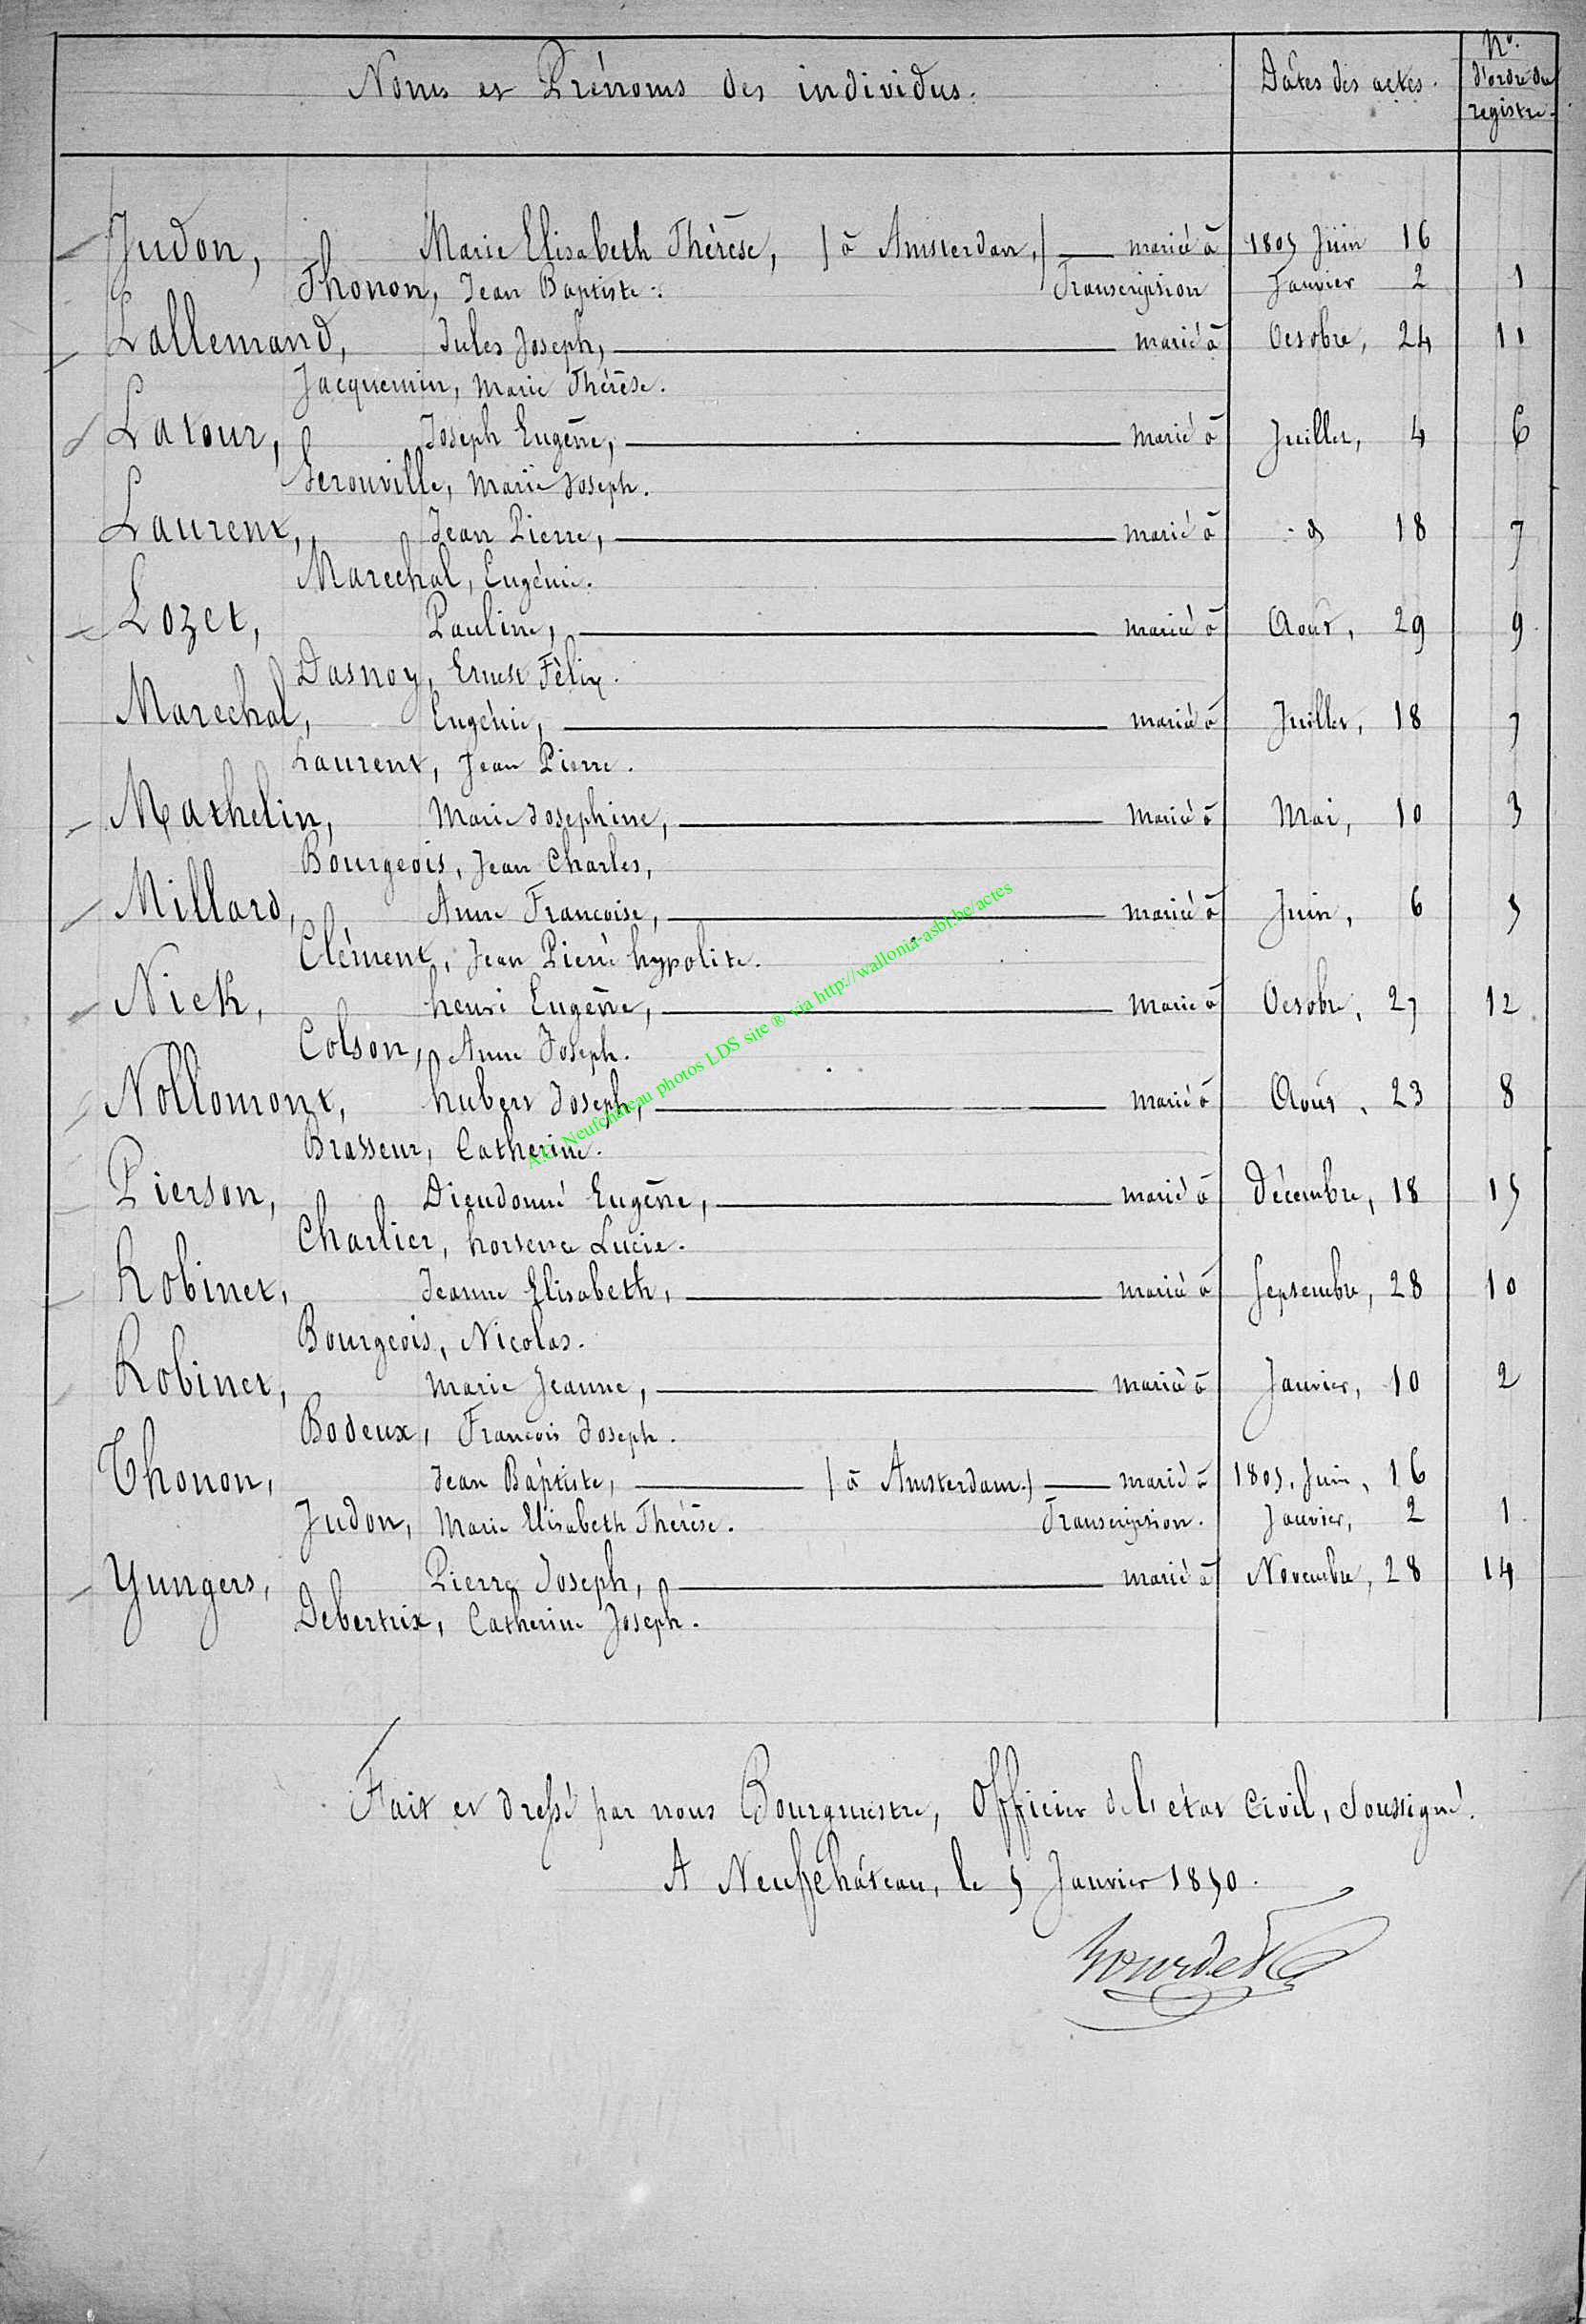 Noms et Prénoms des individus.
Dates des actes.
No.
d'ordre du
registre.
Judon, Marie Elisabeth Thérèse, (à Amsterdam,) mariée à 1805 Juin 16
Thonon, Jean Baptiste. Transcription Janvier 2 1
Lallemand, Jules Joseph, marié à Octobre, 24 11
Jacquemin, Marie Thérèse.
Latour, Joseph Eugène, marié à Juillet, 4 6
Gerouville, Marie Joseph.
Laurent, Jean Pierre, marié à d 18 7
Marechal, Eugénie.
Lozet, Pauline, mariée à Août, 29 9
Dasnoy, Ernest Félix.
Marechal, Eugénie, mariée à Juillet, 18 7
Laurent, Jean Pierre.
Mathelin, Marie Josephine, Mariée à Mai, 10 3
Bourgeois, Jean Charles,
Millard, Anne Francoise, mariée à Juin, 6 5
Clément, Jean Pierre hypolite.
Nick, henri Eugène, Marié à Octobre, 27 12
Colson, Anne Joseph.
Nollomont, hubert Joseph, marié à Août, 23 8
Brasseur, Catherine.
Pierson, Dieudonné Eugène, marié à Décembre, 18 15
Charlier, hortence Lucie.
Robinet, Jeanne Elisabeth, mariée à Septembre, 28 10
Bourgeois, Nicolas.
Robinet, Marie Jeanne, mariée à Janvier, 10 2
Bodeux, Francois Joseph.
Thonon, Jean Baptiste, (à Amsterdam.) marié à 1805, Juin, 16
Judon, Marie Elisabeth Thérèse. Transcription. Janvier, 2 1
Yungers, Pierre Joseph, marié à Novembre, 28 14
Debertrix, Catherine Joseph.
A.C. Neufchâteau photos LDS site ® via http://wallonia-asbl.be/actes
Fait et dressé par nous Bourgmestre, Officier de l'état Civil, Soussigné.
A Neufchâteau, le 5 Janvier 1850.